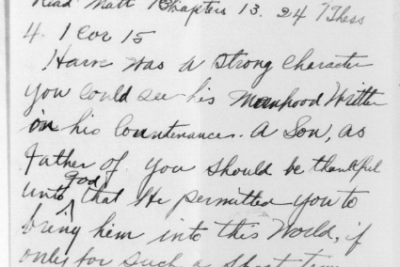 Read Matt Chapters 13. 24 1 Thess
4. 1 Cor 15
was a Strong Character
you could see his Manhood Written
on his Countenances. A Son, as
Father of you should be thankful
unto God that He permitted you to
bring him into this World, if
only for such a short